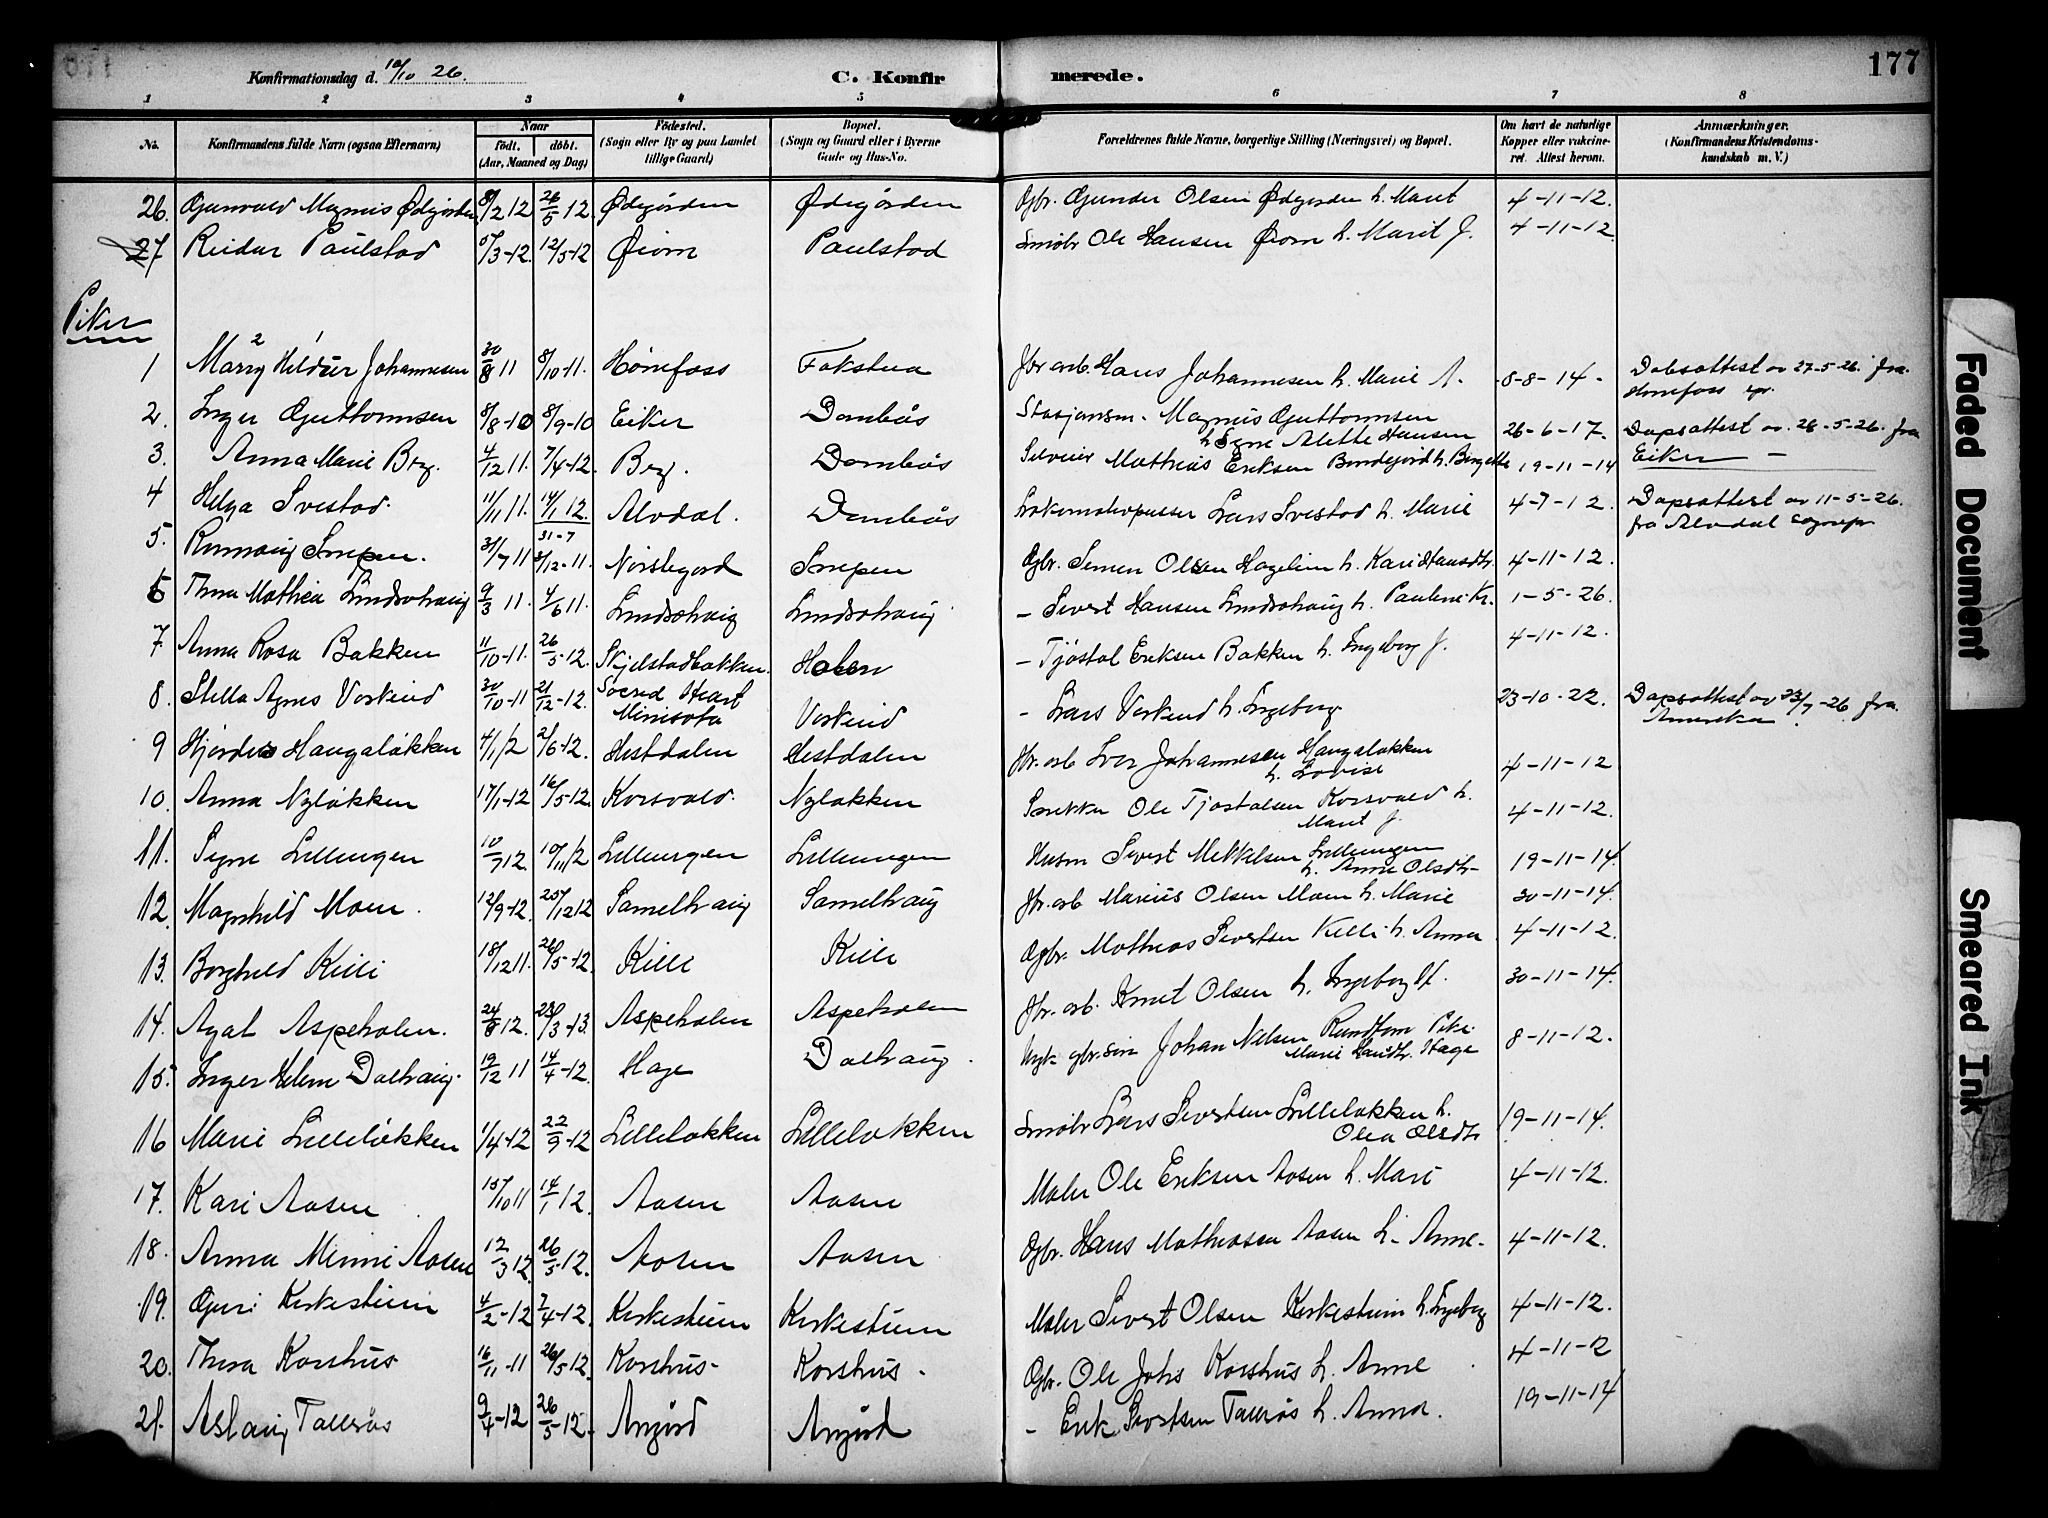 Konfirmationsdag d. 10/10 26.
C. Konfirmerede.
177
1 2 3 4 5 6 7 8
No. Konfirmandens fulde Navn (ogsaa Efternavn) Naar født. døbt. (Aar, Maaned og Dag) Fødested. (Sogn eller By og paa Landet tillige Gaard) Bopæl. (Sogn og Gaard eller i Byerne Gade og Hus-No. Forældrenes fulde Navne, borgerlige Stilling (Næringsvei) og Bopæl. Om havt de naturlige Kopper eller vakcineret. Attest herom. Anmærkninger. (Konfirmandens Kristendomskundskab m. V.)
26. Gunvald Magnus Ødegården 8/2 12 26/5 12. Ødegården Ødegården Gbr. Gunder Olsen Ødegorden h. Marit 4-11-12.
27 Reidar Paulstad /3-12. 12/5-12 Øiom Paulstad Småbr Ole Hansen Øiom h. Marit J. 4-11-12
Piker
1 Marry Hildur Johannesen 30/8 11 8/10-11. Hønefoss Fokstua Jbr arb. Hans Johannesen h. Marie A. 8-8-14- Dobsattest av 27-5-26. fra Hønefoss spr.
2. Inger Guttormsen 8/8-10 8/9-10 Eiker Dombås Stasjonsm. Magnus Guttormsen h Signe Alette Hansen 26-6-17. Dapsattest av. 28-5-26. fra Eiker -
3. Anna Marie Berg. 4/12 11. 7/4-12. Berg. Dombås Mathias Eriksen h. Birgitte 19-11-14
4 Helga Svestad. 11/11 11. 14/1 12. Alvdal. Dombås Lokomotivpusser Lars Svestad h. Marie 4-7-12. Dapsattest av 11-5-26. fra Alvdal sognepr
5. Rannveig Snepen. 31/7 11 31-7 31/12-11. Norstegord Snepen Gbr. Simen Olsen Hagelien h. Kari Hansdtr. 4-11-12.
6 Thora Mathea Lindsøhaug 9/3 11. 4/6 11. Lindsøhaug Lindsøhaug - Sivert Hansen Lindsøhaug h. Pauline K. 1-5-26.
7. Anna Rosa Bakken 11/10-11. 26/5-12. Skjelstadbakken Holen - Tjøstol Eriksen Bakken h. Ingeborg J. 4-11-12.
8. Stella Agnes Vorkind 30/10-11 21/12-12. Sacred Heart Minisota Vorkind - Lars Vorkind h. Ingeborg 23-10-22. Dapsattest av 23/7-26 fra Amerika.
9 Hjørdis Haugaløkken 4/1 12 2/6-12. Hestdalen Hestdalen Jbr. arb Iver Johannesen Haugaløkken h. Lovise 4-11-12
10. Anna Nyløkken 17/1-12 16/5-12. Korsvold. Nyløkken Snekker Ole Tjøstolsen Korsvold h. Marit J. 4-11-12.
11. Signe Lilleengen 10/7 12. 10/11 12 Lilleengen Lilleengen Husm Sivert Mikkelsen Lilleengen h. Anne Olsdtr 19-11-14.
12. Magnhild Moen. 12/9-12. 25/12 12 Samelhaug Samelhaug Jbr. arb Marius Olsen Moen h. Marie 30-11-14.
13. Borghild Killi 18/12 11. 26/5-12. Killi Killi Gbr. Mathias Sivertsen Killi h. Anna 4-11-12.
14. Agat Aspeholen. 24/8 12. 23/3-13. Aspeholen Aspeholen Jbr. arb. Knut Olsen h. Ingeborg 30-11-14.
15. Inger Helene Dalhaug. 19/12 11 14/4-12. Hage Dalhaug. Ugk. gbr. søn Johan Nilsen Rundtom Pike Marie Hansdtr. Hage 8-11-12.
16 Marie Lilleløkken 1/4-12 22/9-12 Lilleløkken Lilleløkken Småbr Lars Sivertsen Lilleløkken h. Olea Olsdtr 19-11-14.
17. Kari Aasen 15/10 11 14/1 12. Aasen Aasen Maler Ole Eriksen Aasen h. Mari 4-11-12.
18. Anna Minni Aasen 12/3 12. 26/5-12. Aasen Aasen Gbr. Hans Mathiasen Aasen h. Anne. 4-11-12.
19. Guri Kirkestuen 4/2-12 7/4-12. Kirkestuen Kirkestuen Maler Sivert Olsen Kirkestuen h. Ingeborg 4-11-12.
20. Thora Korshus 16/11-11 26/5 12. Korshus- Korshus. Gbr. Ole Johs Korshus h. Anne 4-11-12
21. Aslaug Tallerås 9/4-12 26/5-12. Angård Angård - Erik Sivertsen Tallerås h. Anna. 19-11-14
Faded Document
Smeared Ink